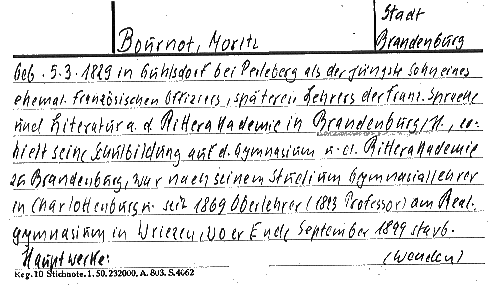 Stadt
Bournot, Moritz Brandenburg
Geb. 5.3.1829 in Gühlsdorf bei Perleberg als der jüngste Sohn eines
ehemal. französischen Offiziers, späteren Lehrers der franz. Sprache
und Literatur a. d. Ritterakademie in Brandenburg/H., er-
hielt seine Schulbildung auf d. Gymnasium u. d. Ritterakademie
zu Brandenburg, war nach seinem Studium Gymnasiallehrer
in Charlottenburg u. seit 1869 Oberlehrer (1893 Professor) am Real-
gymnasium in Wriezen, wo er Ende September 1899 starb.
Hauptwerke: (wenden)
Reg. 10 Stichnote. 1. 50. 232000. A. 803. S. 4062